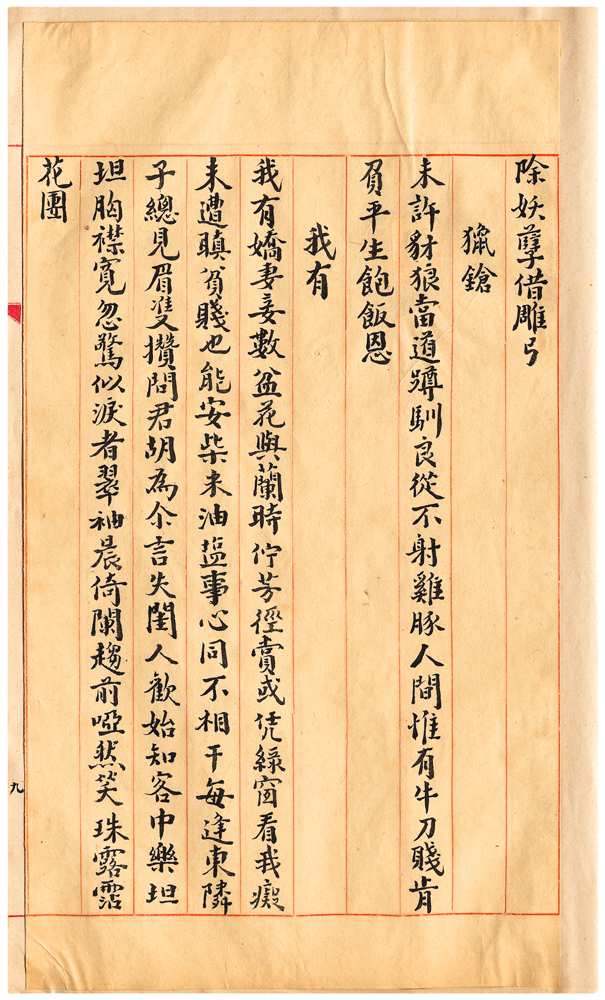 除妖孽借雕弓
獵鎗
未許豺狼當道蹲馴良從不射雞豚人間惟有牛刀賤肯
負平生飽飯恩
我有
我有嬌妻妾數盆花與蘭時佇芳徑賞或凭綠窗看我癡
未遭瞋貧賤也能安柴米油盐事心同不相干每逢東隣
子總見眉雙攢問君胡為尒言失閨人歡始知客中樂坦
坦胸襟寬忽驚似淚者翠袖晨倚闌趨前啞然笑珠露霑
花團
九